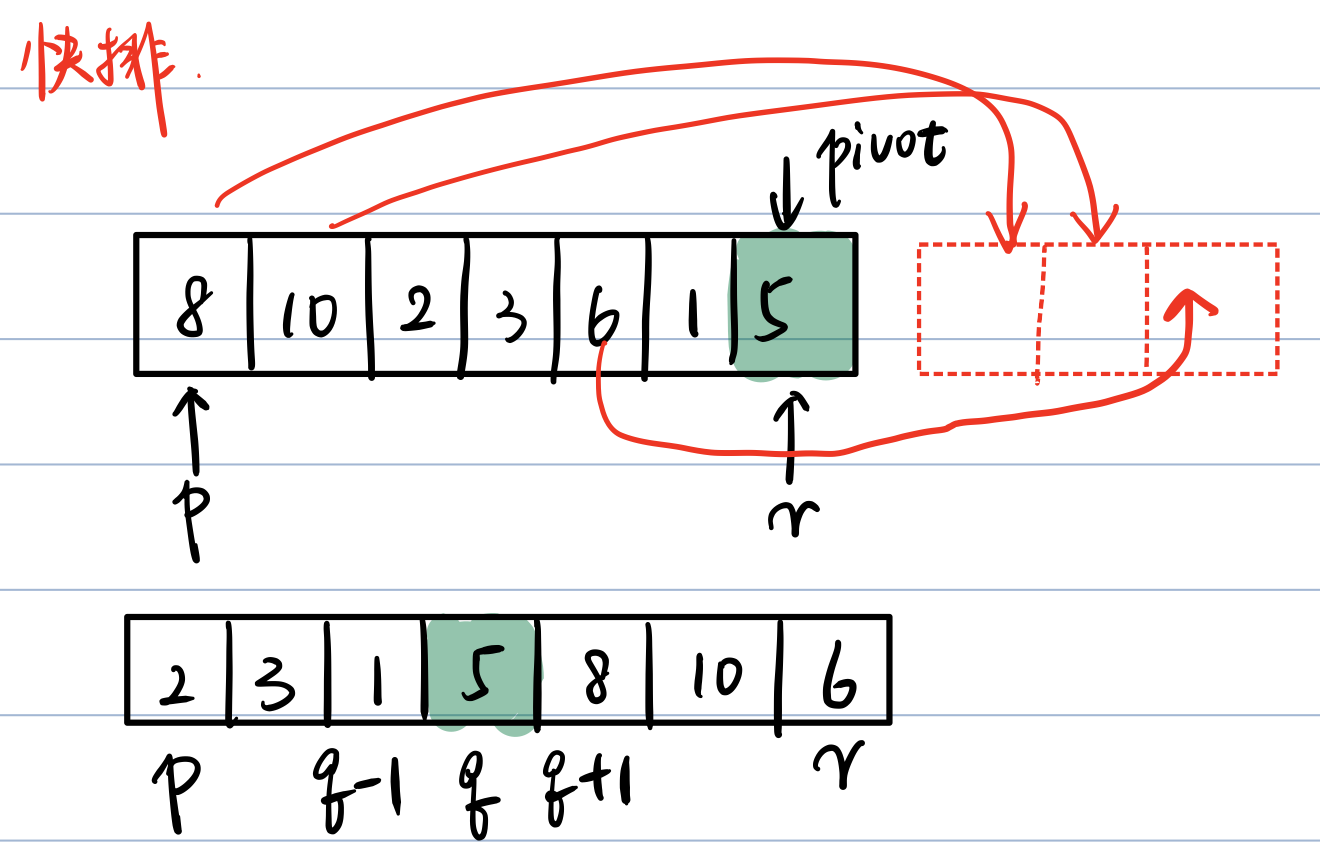 快排.
pivot
8 10 2 3 6 1 5
p r
2 3 1 5 8 10 6
p q-1 q q+1 r